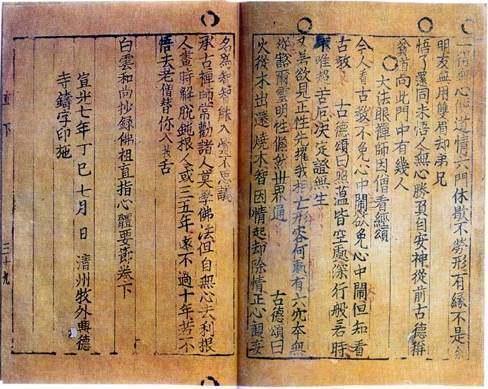 一得無心便道情六門休歇不勞形有緣不是
明友無用雙眉却弟兄
悟了還同未悟人無心勝負自安神從前古德稱
貧道向此門中有幾人
大法眼禪師因僧看經頌
今人看古教不免心中鬧欲免心中鬧但知看
古教 古德頌曰照蘊皆空處深行般若時
唯招苦厄決定證無生
又若欲見正性先 我相亡形容何處有六 本無
從豁爾靈明性 然世界通 古德頌曰
火從木出還燒木智因情起却除情正心觀妄
名爲智智能入 不思議
承古禪師常勸諸人莫學佛法但自無心去利根
人晝時解脫鈍根人或三五年遠不過十年若不
悟去老僧替你入拔舌
白雲和尙抄錄佛祖直指心體要節卷下
宣光七年丁巳七月 日 淸州牧外興德
寺鑄字印施
直下 三十九